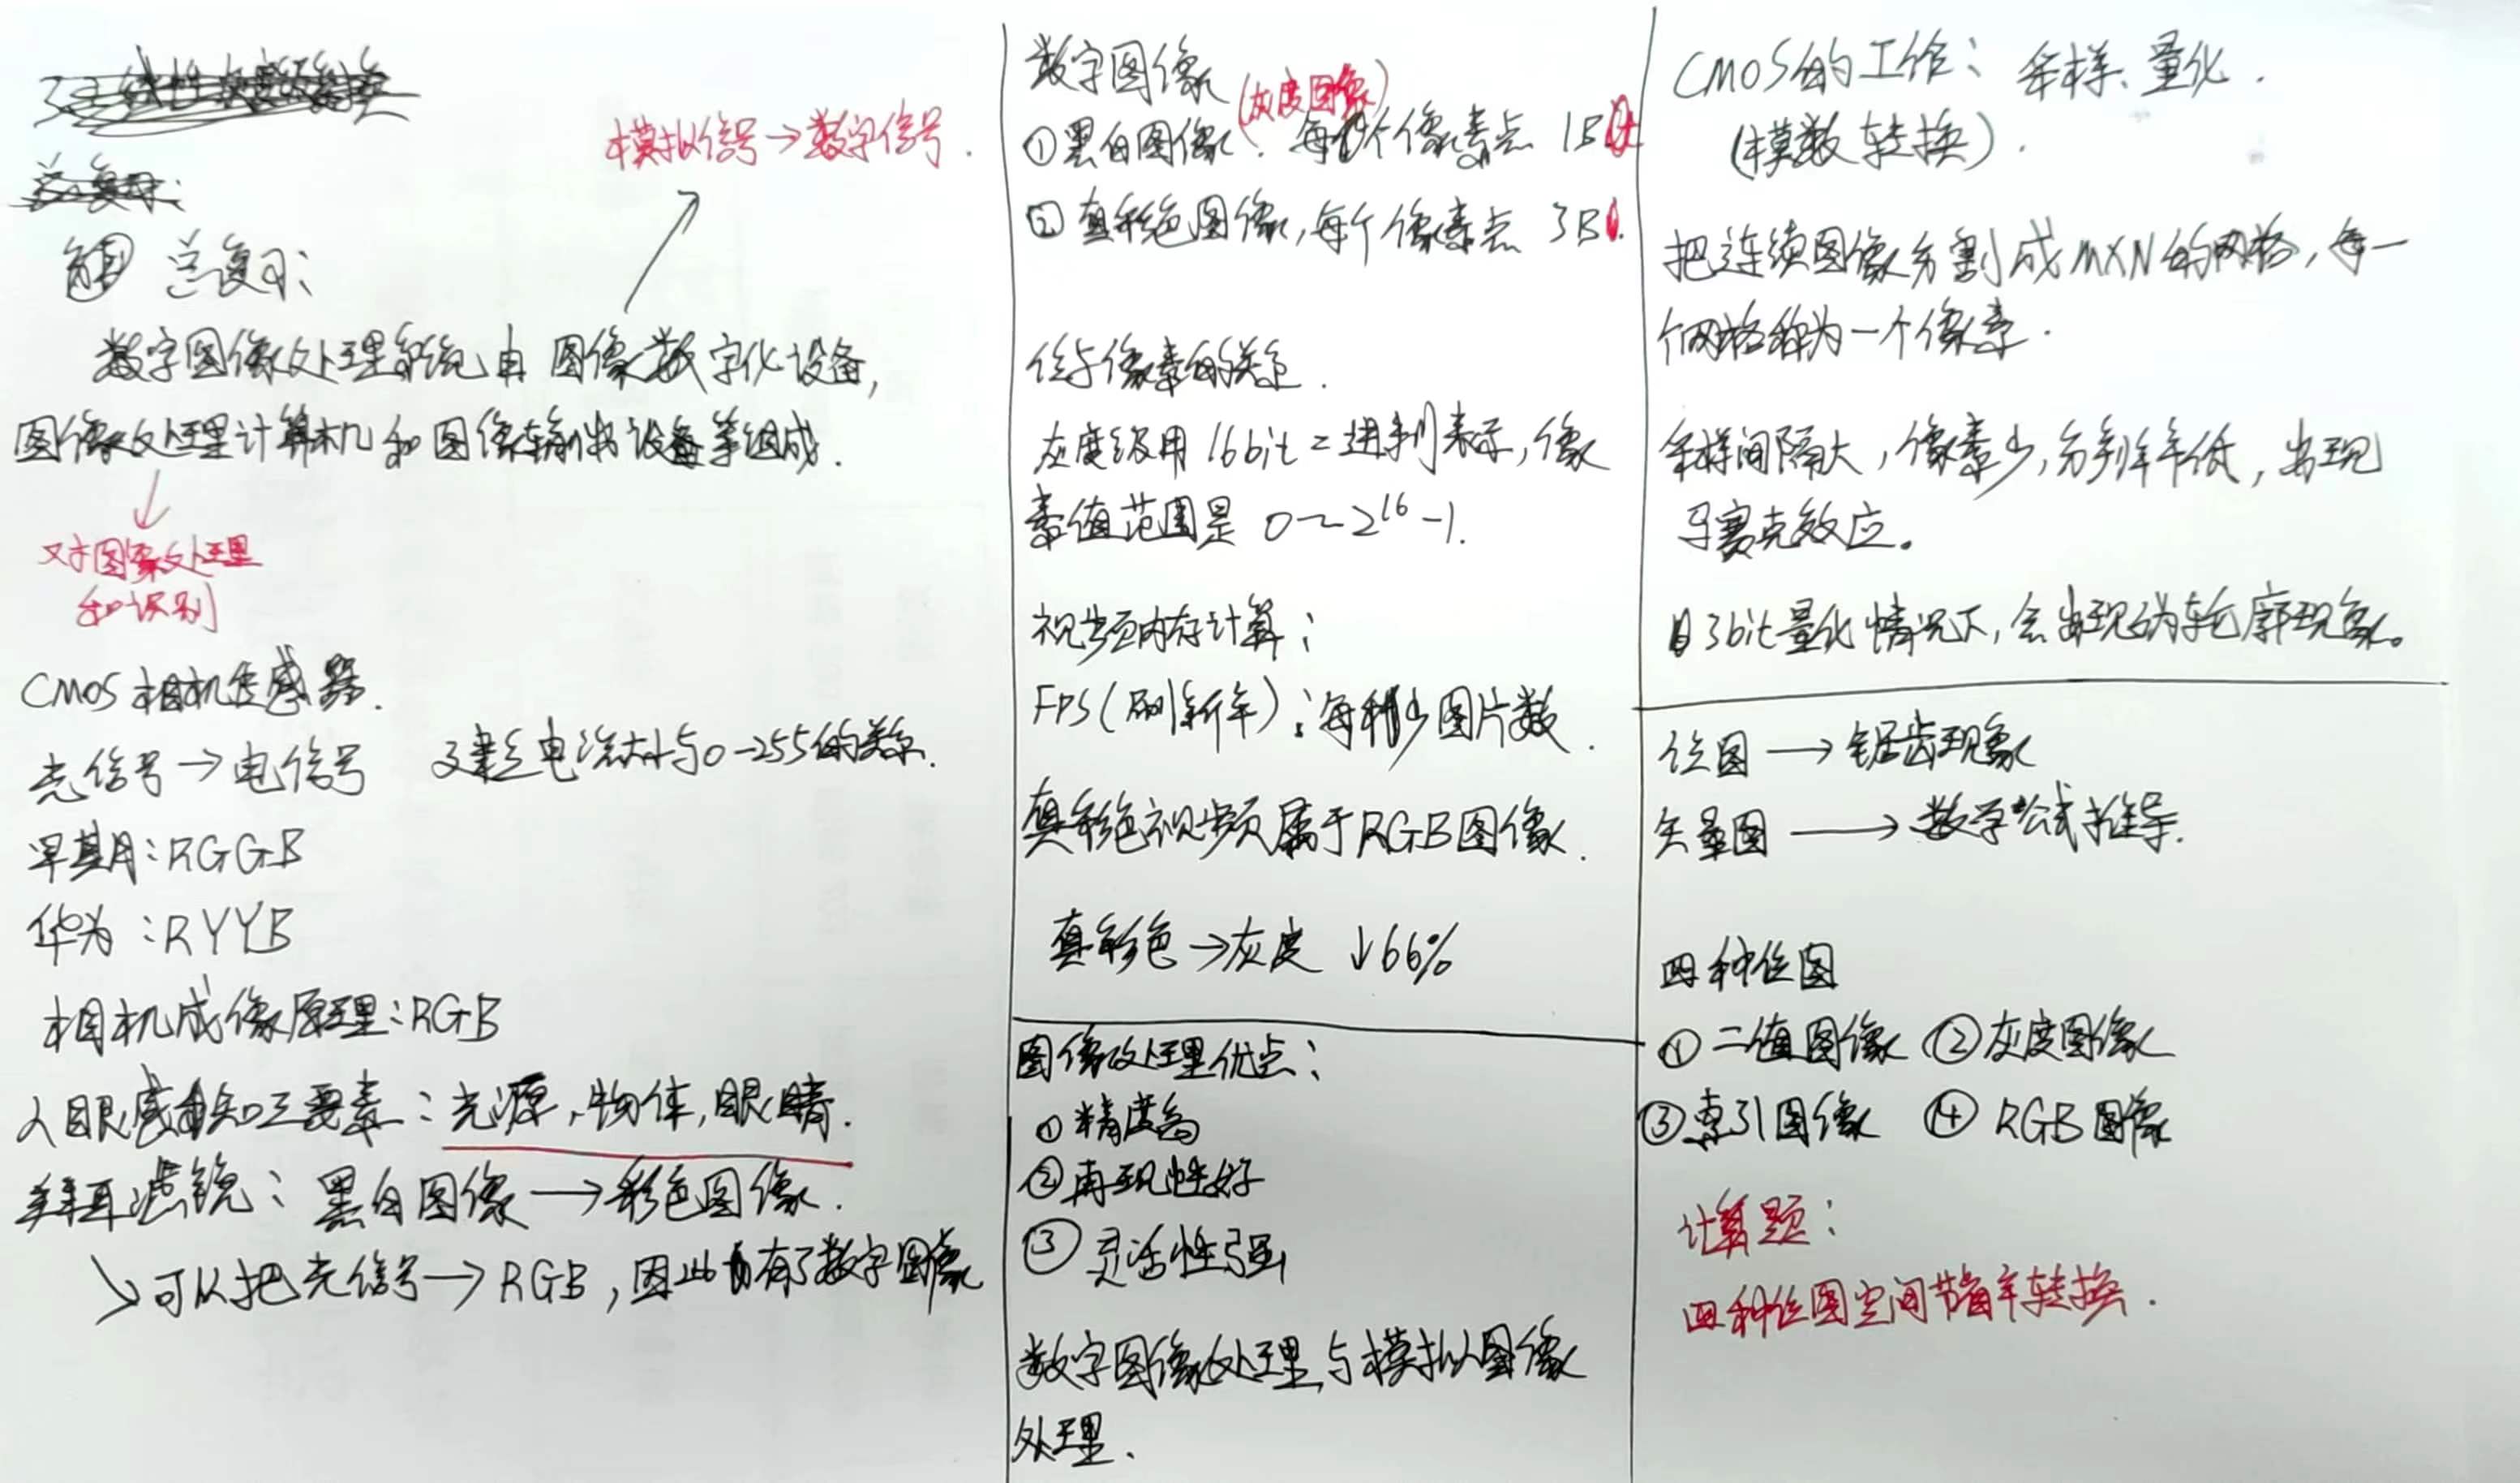 总复习:
模拟信号→数字信号.
数字图像处理系统由 图像数字化设备,
图像处理计算机和图像输出设备等组成.
对图像处理
和识别
CMOS相机传感器.
光信号→电信号 建立电流大小与0-255的关系.
早期:RGGB
华为:RYYB
相机成像原理:RGB
人眼感知三要素:光源,物体,眼睛.
拜耳滤镜:黑白图像→彩色图像.
↘可以把光信号→RGB,因此有了数字图像
数字图像
(灰度图像)
①黑白图像.每个像素点 1B
②真彩色图像,每个像素点 3B.
位与像素的关系.
灰度级用16bit二进制表示,像
素值范围是 0~2^16-1.
视频内存计算:
FPS(刷新率):每秒多少图片数.
真彩色视频属于RGB图像.
真彩色→灰度 ↓66%
图像处理优点:
①精度高
②再现性好
③灵活性强
数字图像处理与模拟图像
处理.
CMOS的工作:采样、量化.
(模数转换).
把连续图像分割成MXN的网格,每一
个网格称为一个像素.
采样间隔大,像素少,分辨率低,出现
马赛克效应。
3bit量化情况下,会出现伪轮廓现象。
位图→锯齿现象
矢量图→数学公式推导.
四种位图
①二值图像 ②灰度图像
③索引图像 ④RGB图像
计算题:
四种位图空间节省率转换.